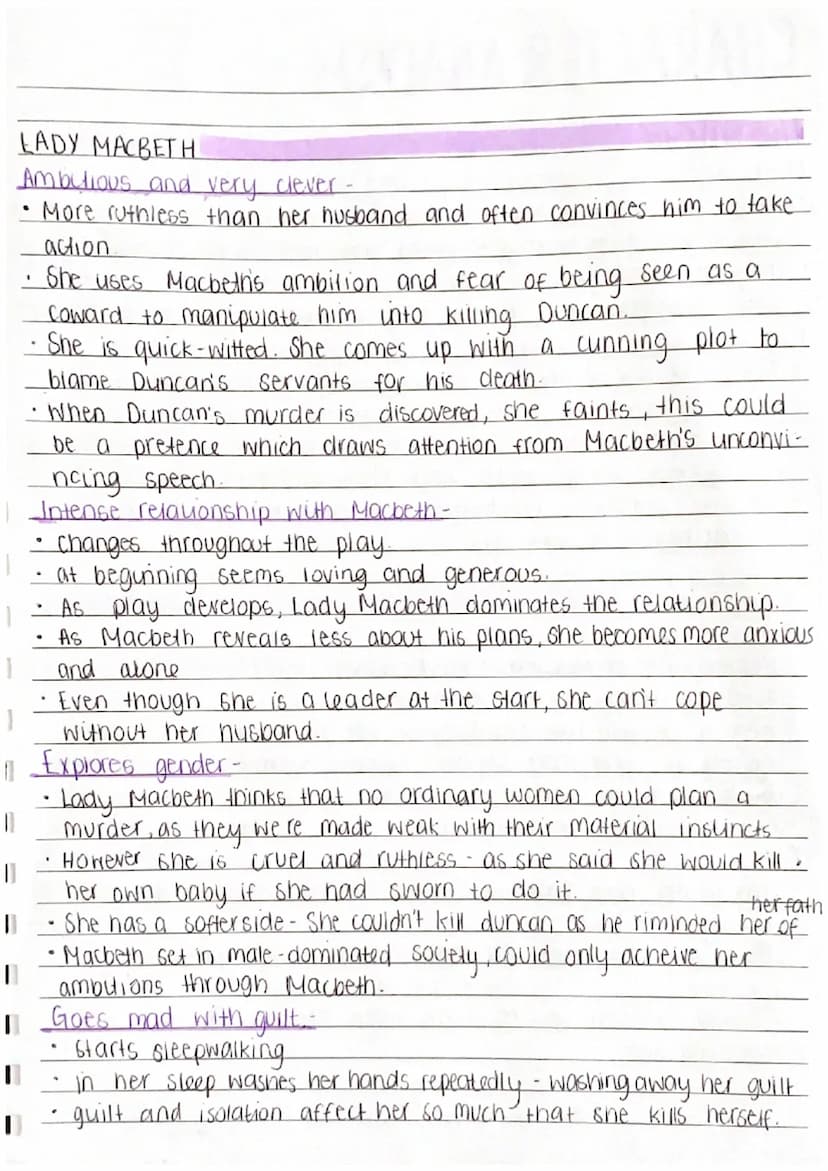 LADY MACBETH
Ambitious and very clever -
• More ruthless than her husband and often convinces him to take
action.
• She uses Macbeth's ambition and fear of being seen as a
coward to manipulate him into killing Duncan.
• She is quick-witted. She comes up with a cunning plot to
blame Duncan's servants for his death.
• When Duncan's murder is discovered, she faints, this could
be a pretence which draws attention from Macbeth's unconvi-
ncing speech.
Intense relationship with Macbeth -
• Changes throughout the play.
• at beginning seems loving and generous.
• As play develops, Lady Macbeth dominates the relationship.
• As Macbeth reveals less about his plans, she becomes more anxious
and alone
• Even though she is a leader at the start, she can't cope
without her husband.
Explores gender -
• Lady Macbeth thinks that no ordinary women could plan a
murder, as they were made weak with their material instincts
• However she is cruel and ruthless - as she said she would kill
her own baby if she had sworn to do it.
her fath
• She has a softer side - She couldn't kill duncan as he riminded her of
• Macbeth set in male-dominated society, could only acheive her
ambitions through Macbeth.
Goes mad with guilt -
• Starts sleepwalking
• in her sleep washes her hands repeatedly - washing away her guilt
• guilt and isolation affect her so much that she kills herself.